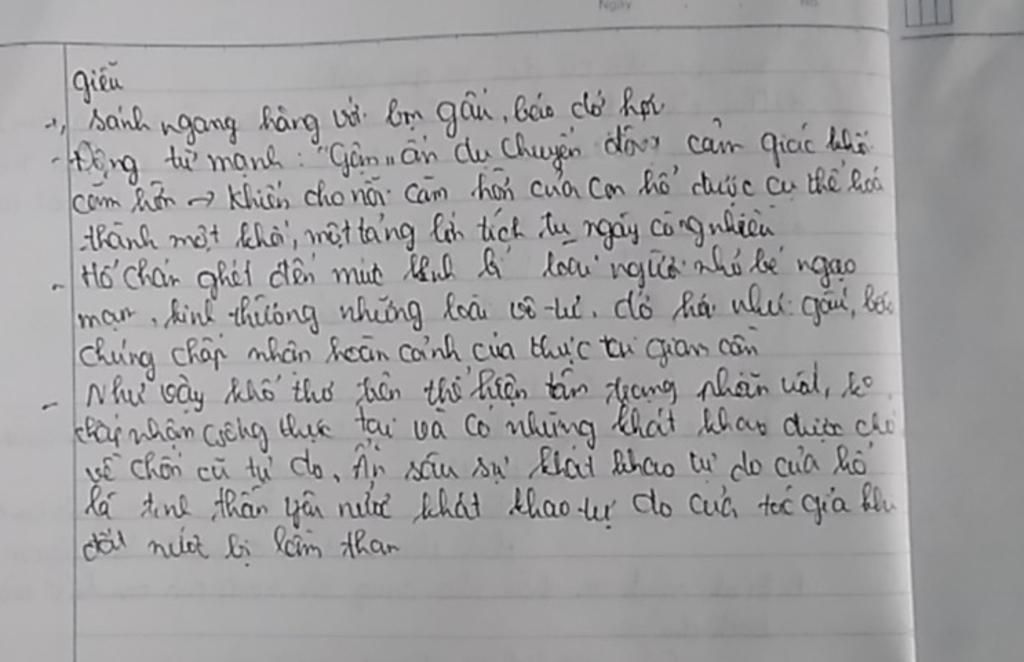 Ngày No.
giễu
+, sánh ngang hàng với bọn gấu, báo dở hơi
- Động từ mạnh: "Gậm" ẩn dụ chuyển đổi cảm giác khối
căm hờn → khiến cho nỗi căm hờn của con hổ được cụ thể hoá
thành một khối, một tảng lớn tích tụ ngày càng nhiều
- Hổ chán ghét đến mức khinh bỉ loài người nhỏ bé ngạo
mạn, kinh thường những loài vô tư. dở hơi như gấu, báo
chúng chấp nhận hoàn cảnh của thực tại giam cầm
- Như vậy khổ thơ trên thể hiện tâm trạng nhân vật, ko
chấp nhận cuộc thực tại và có những khát khao được cho
về chốn cũ tự do. Ẩn sâu sự khát khao tự do của hổ
là tinh thần yêu nước khát khao tự do của tác giả khi
đất nước bị lầm than